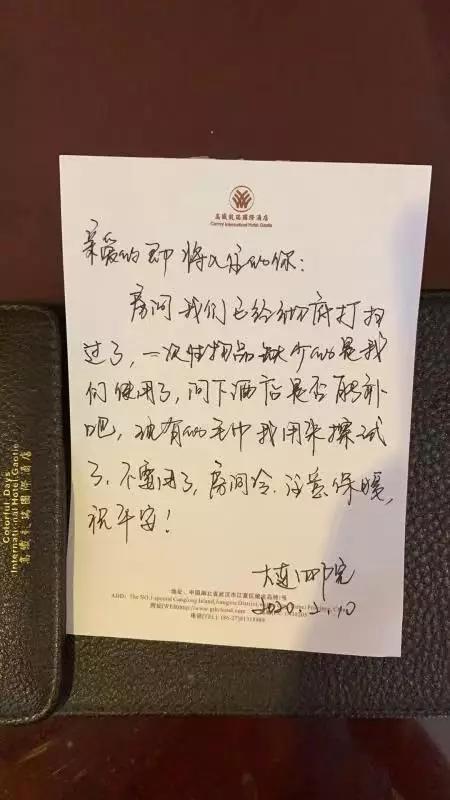 國際酒店
International Hotel Gaotie
亲爱的即将入住的你：
房间我们已经彻底打扫
过了，一次性物品缺少的是我
们使用了，问下酒店是否能补
吧，现有的毛巾我用来擦试
了，不要用了，房间冷，注意保暖，
祝平安！
大连四院
2020.2.10
地址：中国湖北省武汉市江夏区
ADD: The NO.1 special Canglong Island, Jiangxia District,
Colorful Days
International Hotel.Gaotie
國際酒店